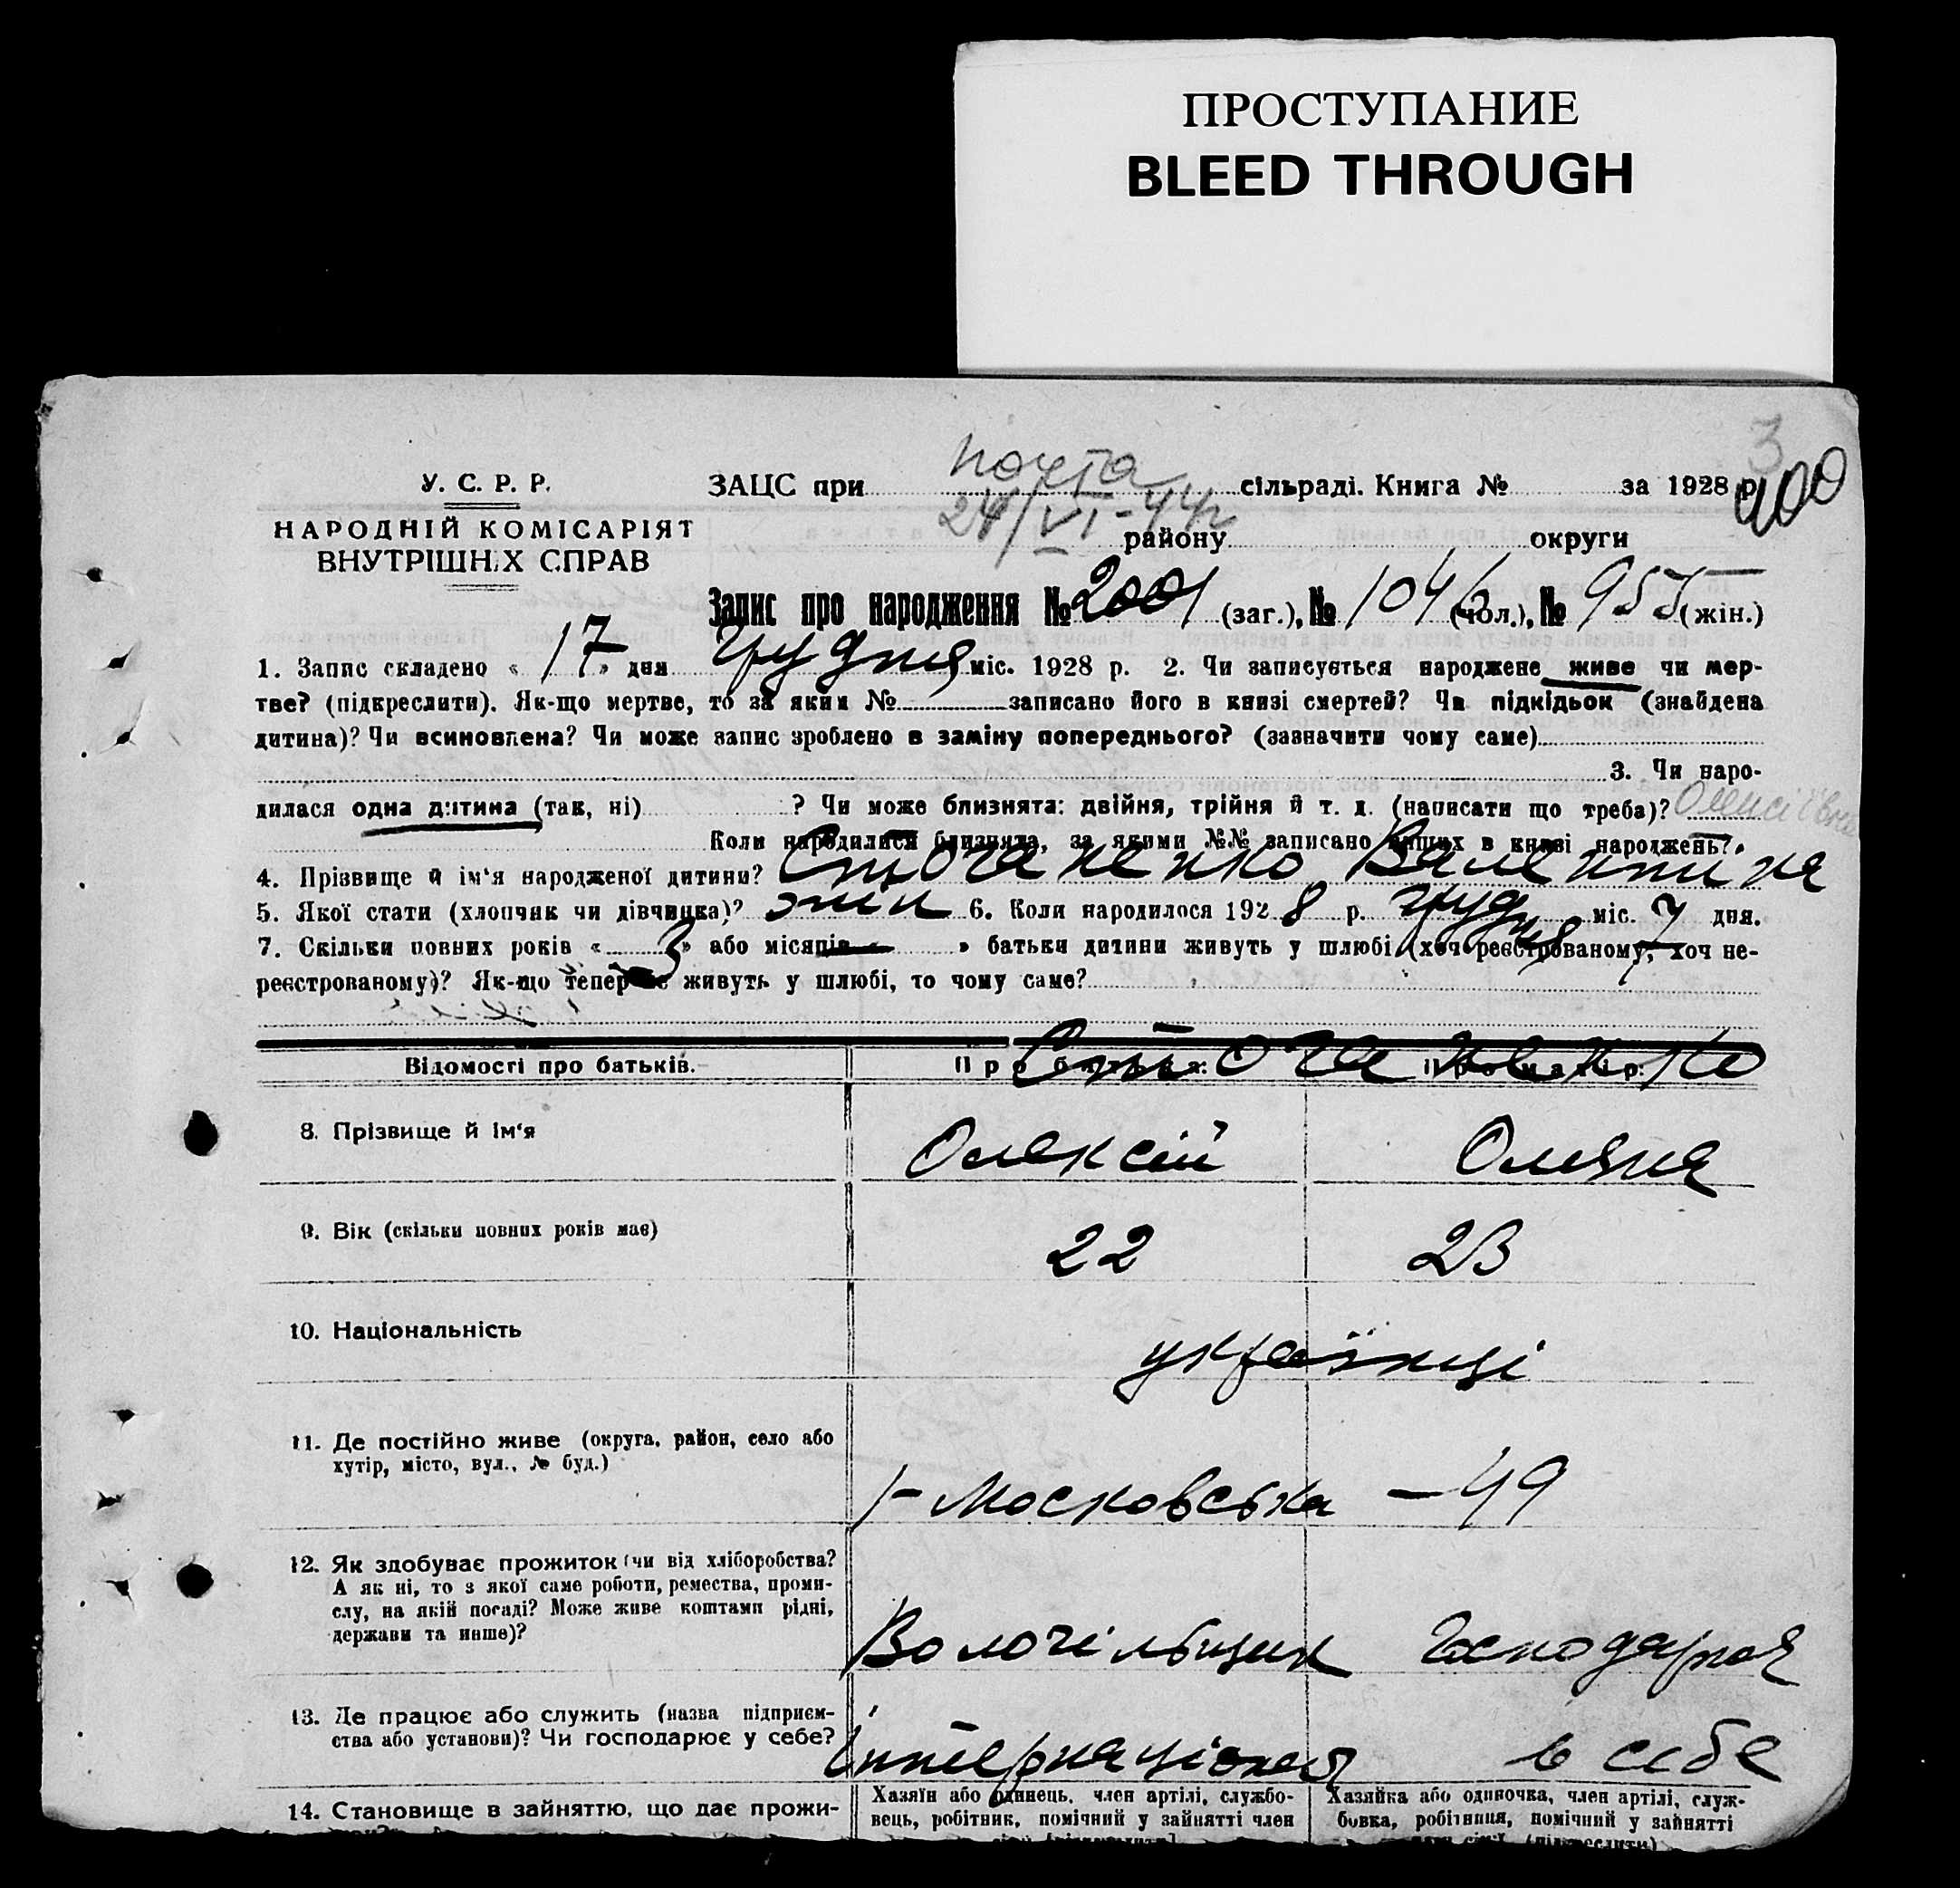 ПРОСТУПАНИЕ
BLEED THROUGH
3
400
У. С. Р. Р.
НАРОДНІЙ КОМІСАРІЯТ
ВНУТРІШНІХ СПРАВ
ЗАЦС при почта сільраді. Книга № за 1928 р.
24/VI-44г району округи
Запис про народження № 2001 (заг.), № 1046 (чол.), № 955 (жін.)
1. Запис складено « 17 » дня грудня міс. 1928 р. 2. Чи записується народжене живе чи мер-
тве? (підкреслити). Як-що мертве, то за яким № записано його в книзі смертей? Чи підкідьок (знайдена
дитина)? Чи всиновлена? Чи може запис зроблено в заміну попереднього? (зазначити чому саме)
3. Чи наро-
дилася одна дитина (так, ні) ? Чи може близнята: двійня, трійня й т. д. (написати що треба)? Олексіївна
Коли народилися близнята, за якими №№ записано інших в книзі народжень?
4. Прізвище й ім‘я народженої дитини? Стогненко Валентина
5. Якої стати (хлопчик чи дівчинка)? жін 6. Коли народилося 1928 р. грудня міс. 7 дня.
7. Скільки повних років « 3 » або місяців « » батьки дитини живуть у шлюбі (хоч реєстрованому, хоч не-
реєстрованому)? Як-що тепер не живуть у шлюбі, то чому саме?
Відомості про батьків. Про батька: Про матір:
8. Прізвище й ім‘я Олексій Оляна
9. Вік (скільки повних років має) 22 23
10. Національність українці
11. Де постійно живе (округа, район, село або
хутір, місто, вул., № буд.)
1- Московська - 49
12. Як здобуває прожиток (чи від хліборобства?
А як ні, то з якої саме роботи, ремества, проми-
слу, на якій посаді? Може живе коштами рідні,
держави та инше)?
господарка
13. Де працює або служить (назва підприєм-
ства або установи)? Чи господарює у себе?
Інтернаціонал в себе
14. Становище в зайняттю, що дає прожи-
Хазяїн або одинець, член артілі, службо-
вець, робітник, помічний у зайнятті член
Хазяйка або одиночка, член артілі, служ-
бовка, робітниця, помічний у зайнятті